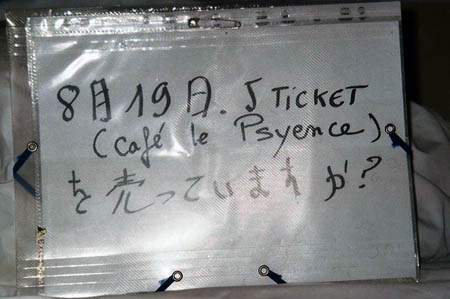 8月19日. 5 TICKET
(Café le Psyence)
を売っていますか?